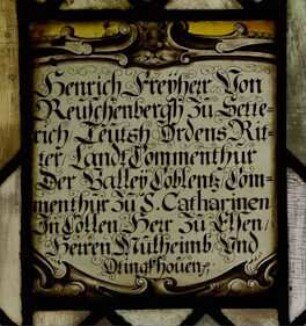 Henrich Freyherr Von
Reuschenbergh Zu Sette=
rich Teutsh Ordens Rit=
ter Landt Commenthur
Der Balley Coblentz Com=
menthur Zu S. Catharinen
In Collen Herr Zu Elsen /
Herren Mülheimb Vnd